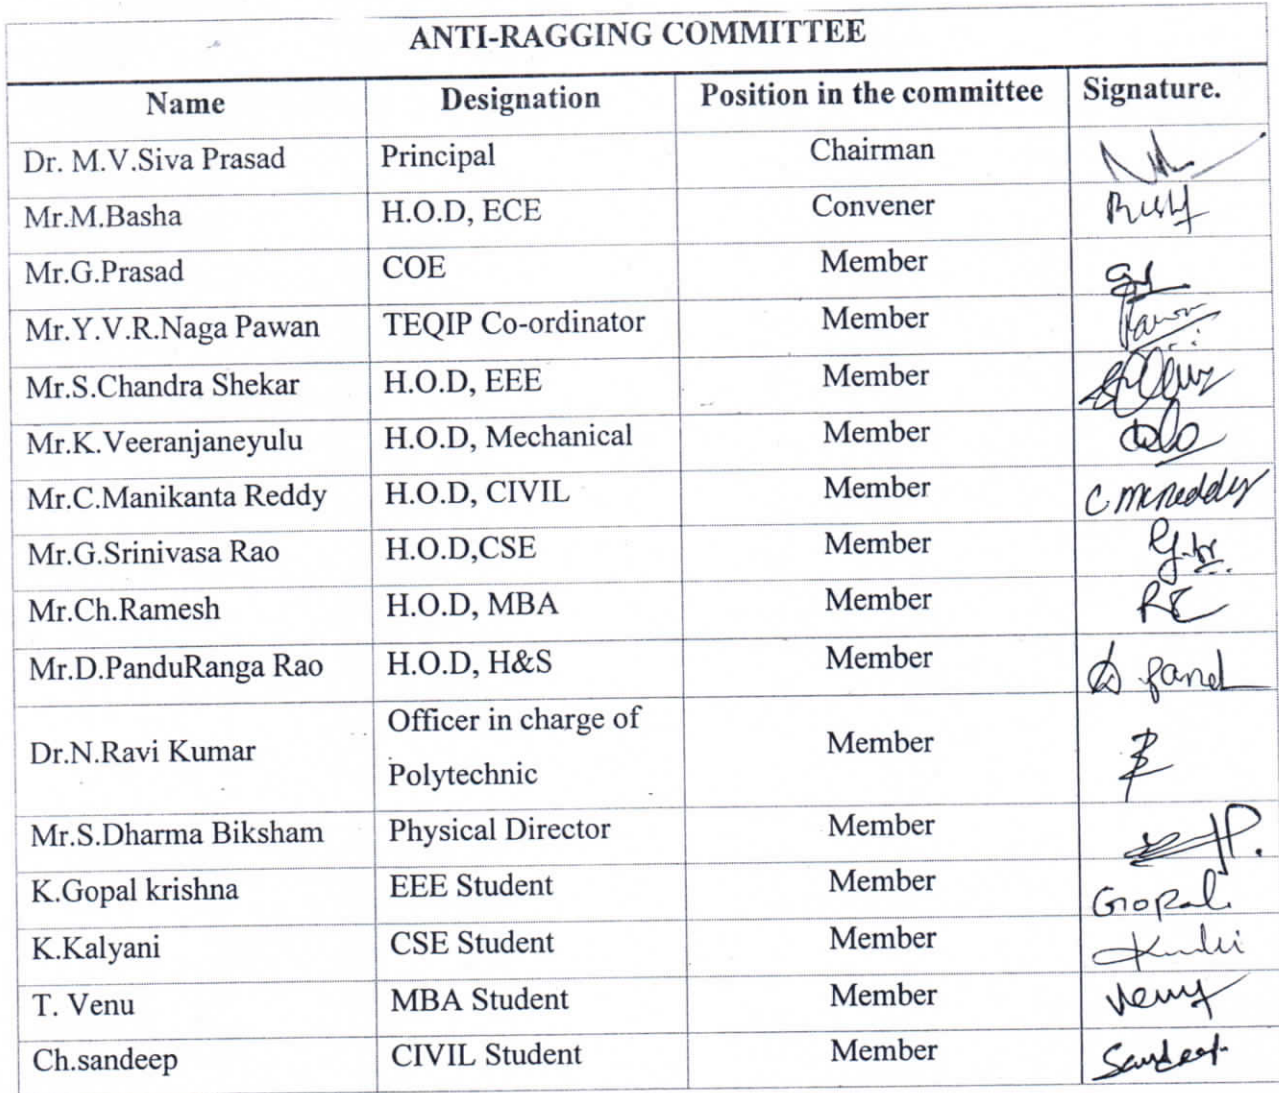 ANTI-RAGGING COMMITTEE
Name Designation Position in the committee Signature.
Dr. M.V.Siva Prasad Principal Chairman
Mr.M.Basha H.O.D, ECE Convener
Mr.G.Prasad COE Member
Mr.Y.V.R.Naga Pawan TEQIP Co-ordinator Member
Mr.S.Chandra Shekar H.O.D, EEE Member
Mr.K.Veeranjaneyulu H.O.D, Mechanical Member
Mr.C.Manikanta Reddy H.O.D, CIVIL Member
Mr.G.Srinivasa Rao H.O.D,CSE Member
Mr.Ch.Ramesh H.O.D, MBA Member
Mr.D.PanduRanga Rao H.O.D, H&S Member
Officer in charge of
Dr.N.Ravi Kumar Member
Polytechnic
Mr.S.Dharma Biksham Physical Director Member
K.Gopal krishna EEE Student Member Gopal
K.Kalyani CSE Student Member
T. Venu MBA Student Member
Ch.sandeep CIVIL Student Member Sandeep